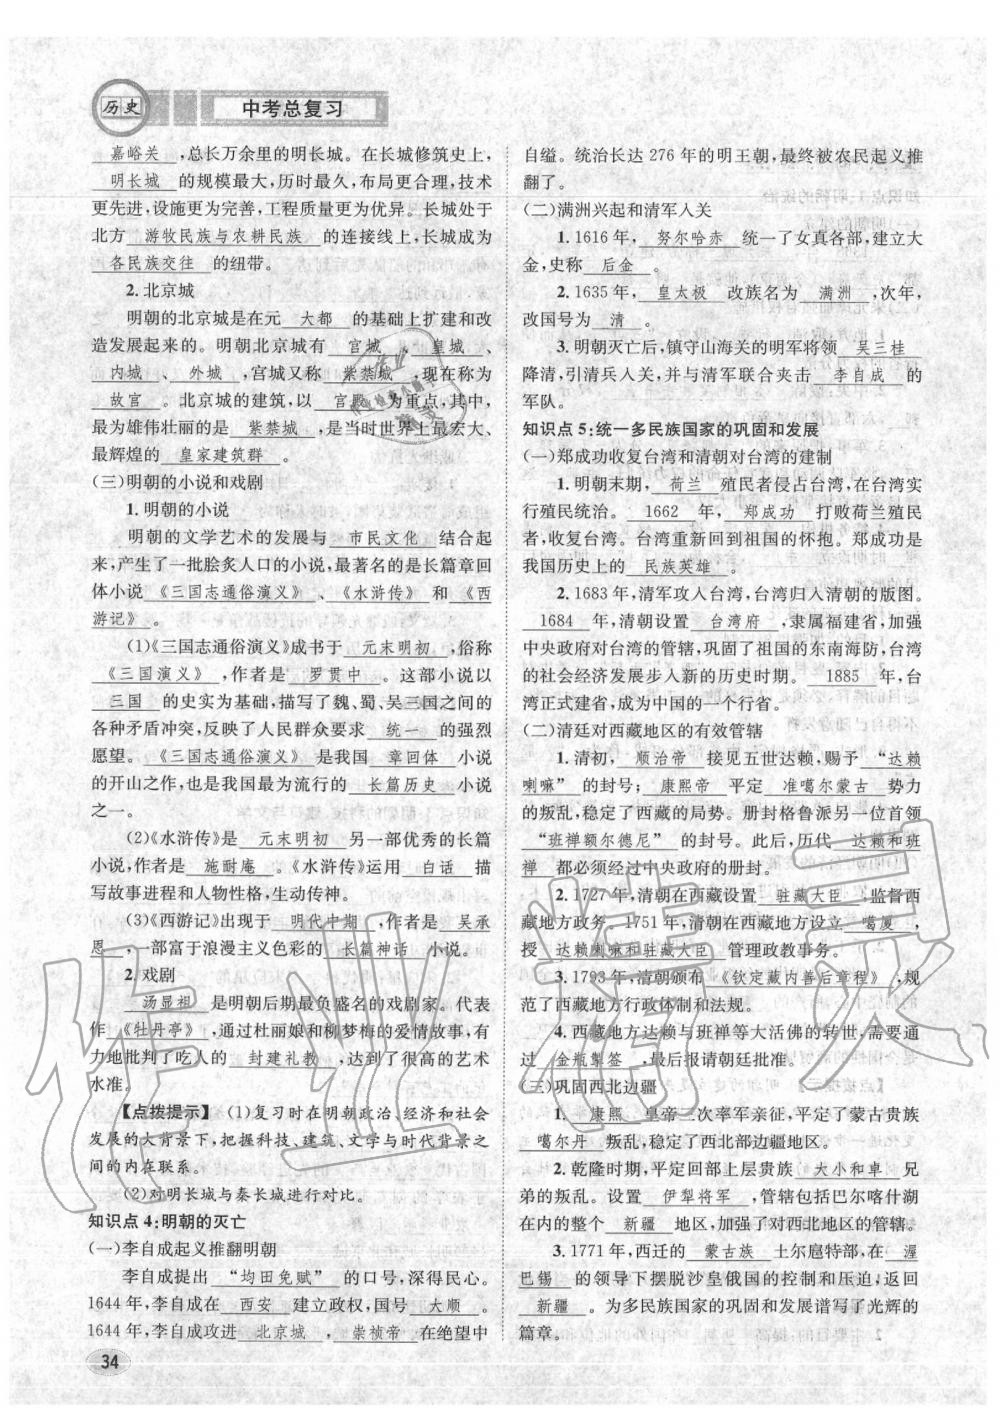 历史
中考总复习
嘉峪关,总长万余里的明长城。在长城修筑史上,
明长城的规模最大,历时最久,布局更严谨,技术
更先进,设施更为完善,工程质量更为优异。长城处于
北方游牧民族与农耕民族的连接线上,长城成为
各民族交往的纽带。
2.北京城
明朝的北京城是在元大都的基础上扩建和改
造发展起来的。明朝北京城有宫城、皇城、
内城、外城,宫城又称紫禁城,现在称为
故宫。北京城的建筑,以宫殿为重点,其中,
最为雄伟壮丽的是紫禁城,是当时世界上最宏大、
最辉煌的皇家建筑群。
(三)明朝的小说和戏剧
1.明朝的小说
明朝的文学艺术的发展与市民文化结合起
来,产生了一批脍炙人口的小说,最著名的是长篇章回
体小说《三国志通俗演义》、《水浒传》和《西
游记》。
(1)《三国志通俗演义》成书于元末明初,俗称
《三国演义》,作者是罗贯中。这部小说以
三国的史实为基础,描写了魏、蜀、吴三国之间的
各种矛盾冲突,反映了人民群众要求统一的强烈
愿望。《三国志通俗演义》是我国章回体小说
的开山之作,也是我国最为流行的长篇历史小说
之一。
(2)《水浒传》是元末明初另一部优秀的长篇
小说,作者是施耐庵。《水浒传》运用白话描
写故事进程和人物性格,生动传神。
(3)《西游记》出现于明代中期,作者是吴承
恩,一部富于浪漫主义色彩的长篇神话小说。
2.戏剧
汤显祖是明朝后期最负盛名的戏剧家。代表
作《牡丹亭》,通过杜丽娘和柳梦梅的爱情故事,有
力地批判了吃人的封建礼教,达到了很高的艺术
水准。
【点拨提示】(1)复习时在明朝政治、经济和社会
发展的大背景下,把握科技、建筑、文学与时代背景之
间的内在联系。
(2)对明长城与秦长城进行对比。
知识点4:明朝的灭亡
(一)李自成起义推翻明朝
李自成提出“均田免赋”的口号,深得民心。
1644年,李自成在西安建立政权,国号大顺。
1644年,李自成攻进北京城,崇祯帝在绝望中
自缢。统治长达276年的明王朝,最终被农民起义推
翻了。
(二)满洲兴起和清军入关
1.1616年,努尔哈赤统一了女真各部,建立大
金,史称后金。
2.1635年,皇太极改族名为满洲,次年,
改国号为清。
3.明朝灭亡后,镇守山海关的明军将领吴三桂
降清,引清兵入关,并与清军联合夹击李自成的
军队。
知识点5:统一多民族国家的巩固和发展
(一)郑成功收复台湾和清朝对台湾的建制
1.明朝末期,荷兰殖民者侵占台湾,在台湾实
行殖民统治。1662年,郑成功打败荷兰殖民
者,收复台湾。台湾重新回到祖国的怀抱。郑成功是
我国历史上的民族英雄。
2.1683年,清军攻入台湾,台湾归入清朝的版图。
1684年,清朝设置台湾府,隶属福建省,加强
中央政府对台湾的管辖,巩固了祖国的东南海防,台湾
的社会经济发展步入新的历史时期。1885年,台
湾正式建省,成为中国的一个行省。
(二)清廷对西藏地区的有效管辖
1.清初,顺治帝接见五世达赖,赐予“达赖
喇嘛”的封号;康熙帝平定准噶尔蒙古势力
的叛乱,稳定了西藏的局势。册封格鲁派另一位首领
“班禅额尔德尼”的封号。此后,历代达赖和班
禅都必须经过中央政府的册封。
2.1727年,清朝在西藏设置驻藏大臣,监督西
藏地方政务。1751年,清朝在西藏地方设立噶厦,
授达赖喇嘛和驻藏大臣管理政教事务。
3.1793年,清朝颁布《钦定藏内善后章程》,规
范了西藏地方行政体制和法规。
4.西藏地方达赖与班禅等大活佛的转世,需要通
过金瓶掣签,最后报请朝廷批准。
(三)巩固西北边疆
1.康熙皇帝三次率军亲征,平定了蒙古贵族
噶尔丹叛乱,稳定了西北部边疆地区。
2.乾隆时期,平定回部上层贵族大小和卓兄
弟的叛乱。设置伊犁将军,管辖包括巴尔喀什湖
在内的整个新疆地区,加强了对西北地区的管辖。
3.1771年,西迁的蒙古族土尔扈特部,在渥
巴锡的领导下摆脱沙皇俄国的控制和压迫,返回
新疆。为多民族国家的巩固和发展谱写了光辉的
篇章。
34
作业精灵